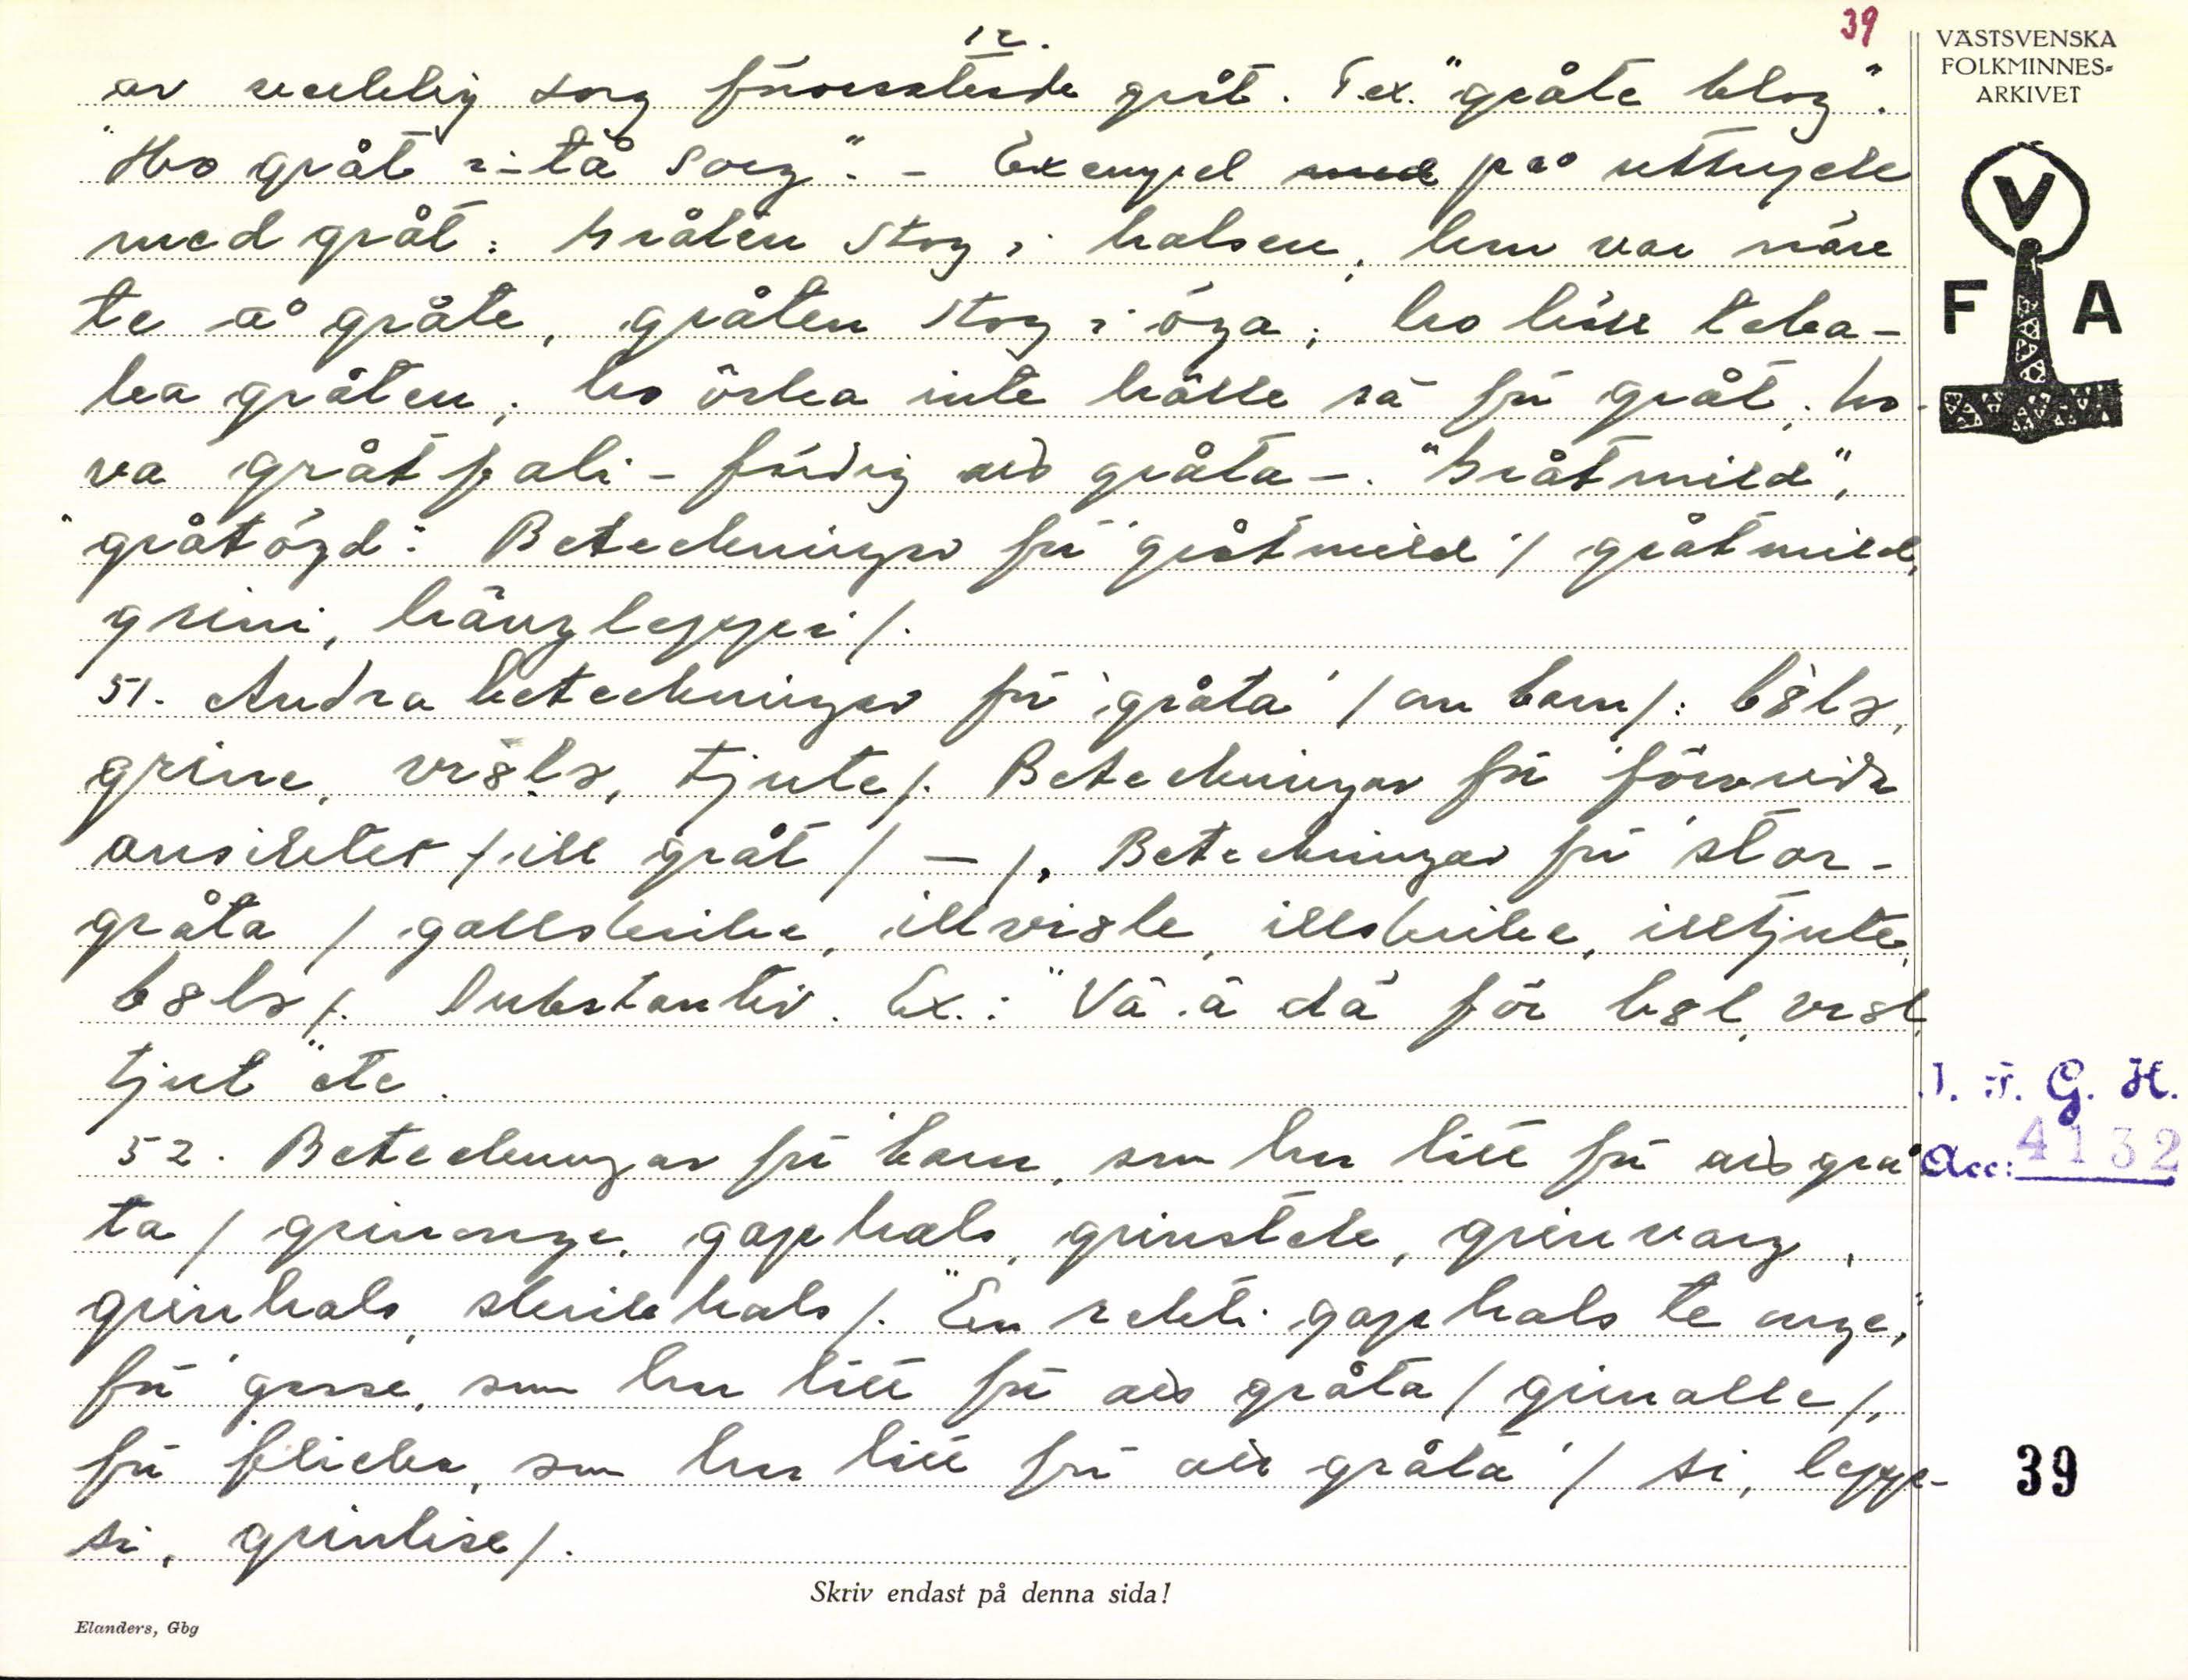 12.
39
av verklig sorg förorsakade gråt. T.ex. "gråte blog".
"Ho gråt i-tå sorg". - Exempel med på uttryck
med gråt: Gråten stog i halsen, hun var näre
te å gråte, gråten stog i öga, ho höll teba-
ka gråten, ho örka inte hålle sä för gråt, ho
va gråtfali - färdig att gråta -. "Gråtmild",
"gråtögd". Beteckningar för 'gråtmild' / gråtmild,
grini, hängleppi /.
51. Andra beteckningar för 'gråta' / om barn /:böla,
grine, vröla, tjute /. Beteckningar för 'förvrida
ansiktet till gråt' / - /. Beteckningar för 'stor-
gråta' / gallskrike, illvröle, illskrike, illtjute,
böla /. Substantiv. Ex.: "Va ä dä för böl, vröl,
tjut" etc.
52. Beteckningar för 'barn, som har lätt för att grå-
ta' / grinonge, gaphals, grinstek, grinvarg,
grinhals, skrikhals /. "En rekti gaphals te onge,"
för 'gosse, som har lätt för att gråta' / grinolle /,
för 'flicka, som har lätt för att gråta' / si, lepp-
si, grinlise /.
Skriv endast på denna sida!
Elanders, Gbg
VÄSTSVENSKA
FOLKMINNES-
ARKIVET
V
F A
I. F. G. H.
Acc: 4132
39